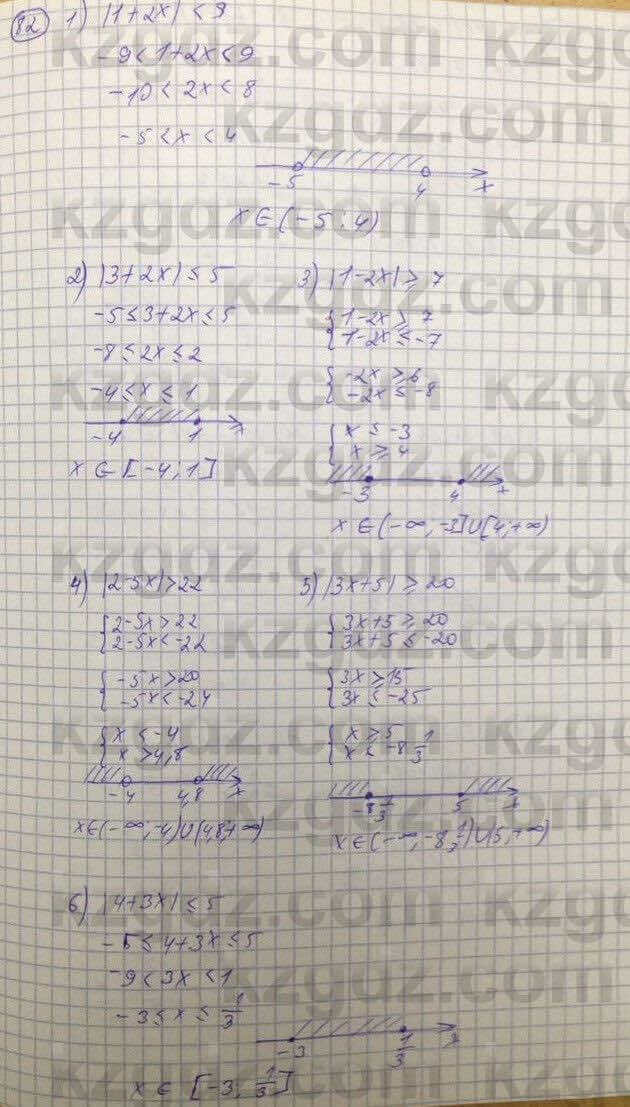 82 1) |1+2x| < 9
-9<1+2x<9
-10<2x<8
-5<x<4
-5 4 x
x∈(-5;4)
2) |3+2x|≤5
-5≤3+2x≤5
-8≤2x≤2
-4≤x≤1
-4 1 x
x∈[-4;1]
3) |1-2x|≥7
{1-2x≥7
1-2x≤-7
{-2x≥6
-2x≤-8
{x≤-3
x≥4
-3 4 x
x∈(-∞,-3]∪[4;+∞)
4) |2-5x|>22
{2-5x>22
2-5x<-22
{-5x>20
-5x<-24
{x<-4
x>4,8
-4 4,8 x
x∈(-∞,-4)∪(4,8,+∞)
5) |3x+5|≥20
{3x+5≥20
3x+5≤-20
{3x≥15
3x≤-25
{x≥5
x≤-8 1/3
-8 1/3 5 x
x∈(-∞,-8 1/3)∪(5,+∞)
6) |4+3x|≤5
-5≤4+3x≤5
-9<3x<1
-3≤x≤1/3
-3 1/3 x
x∈[-3; 1/3]
kzgdz.com